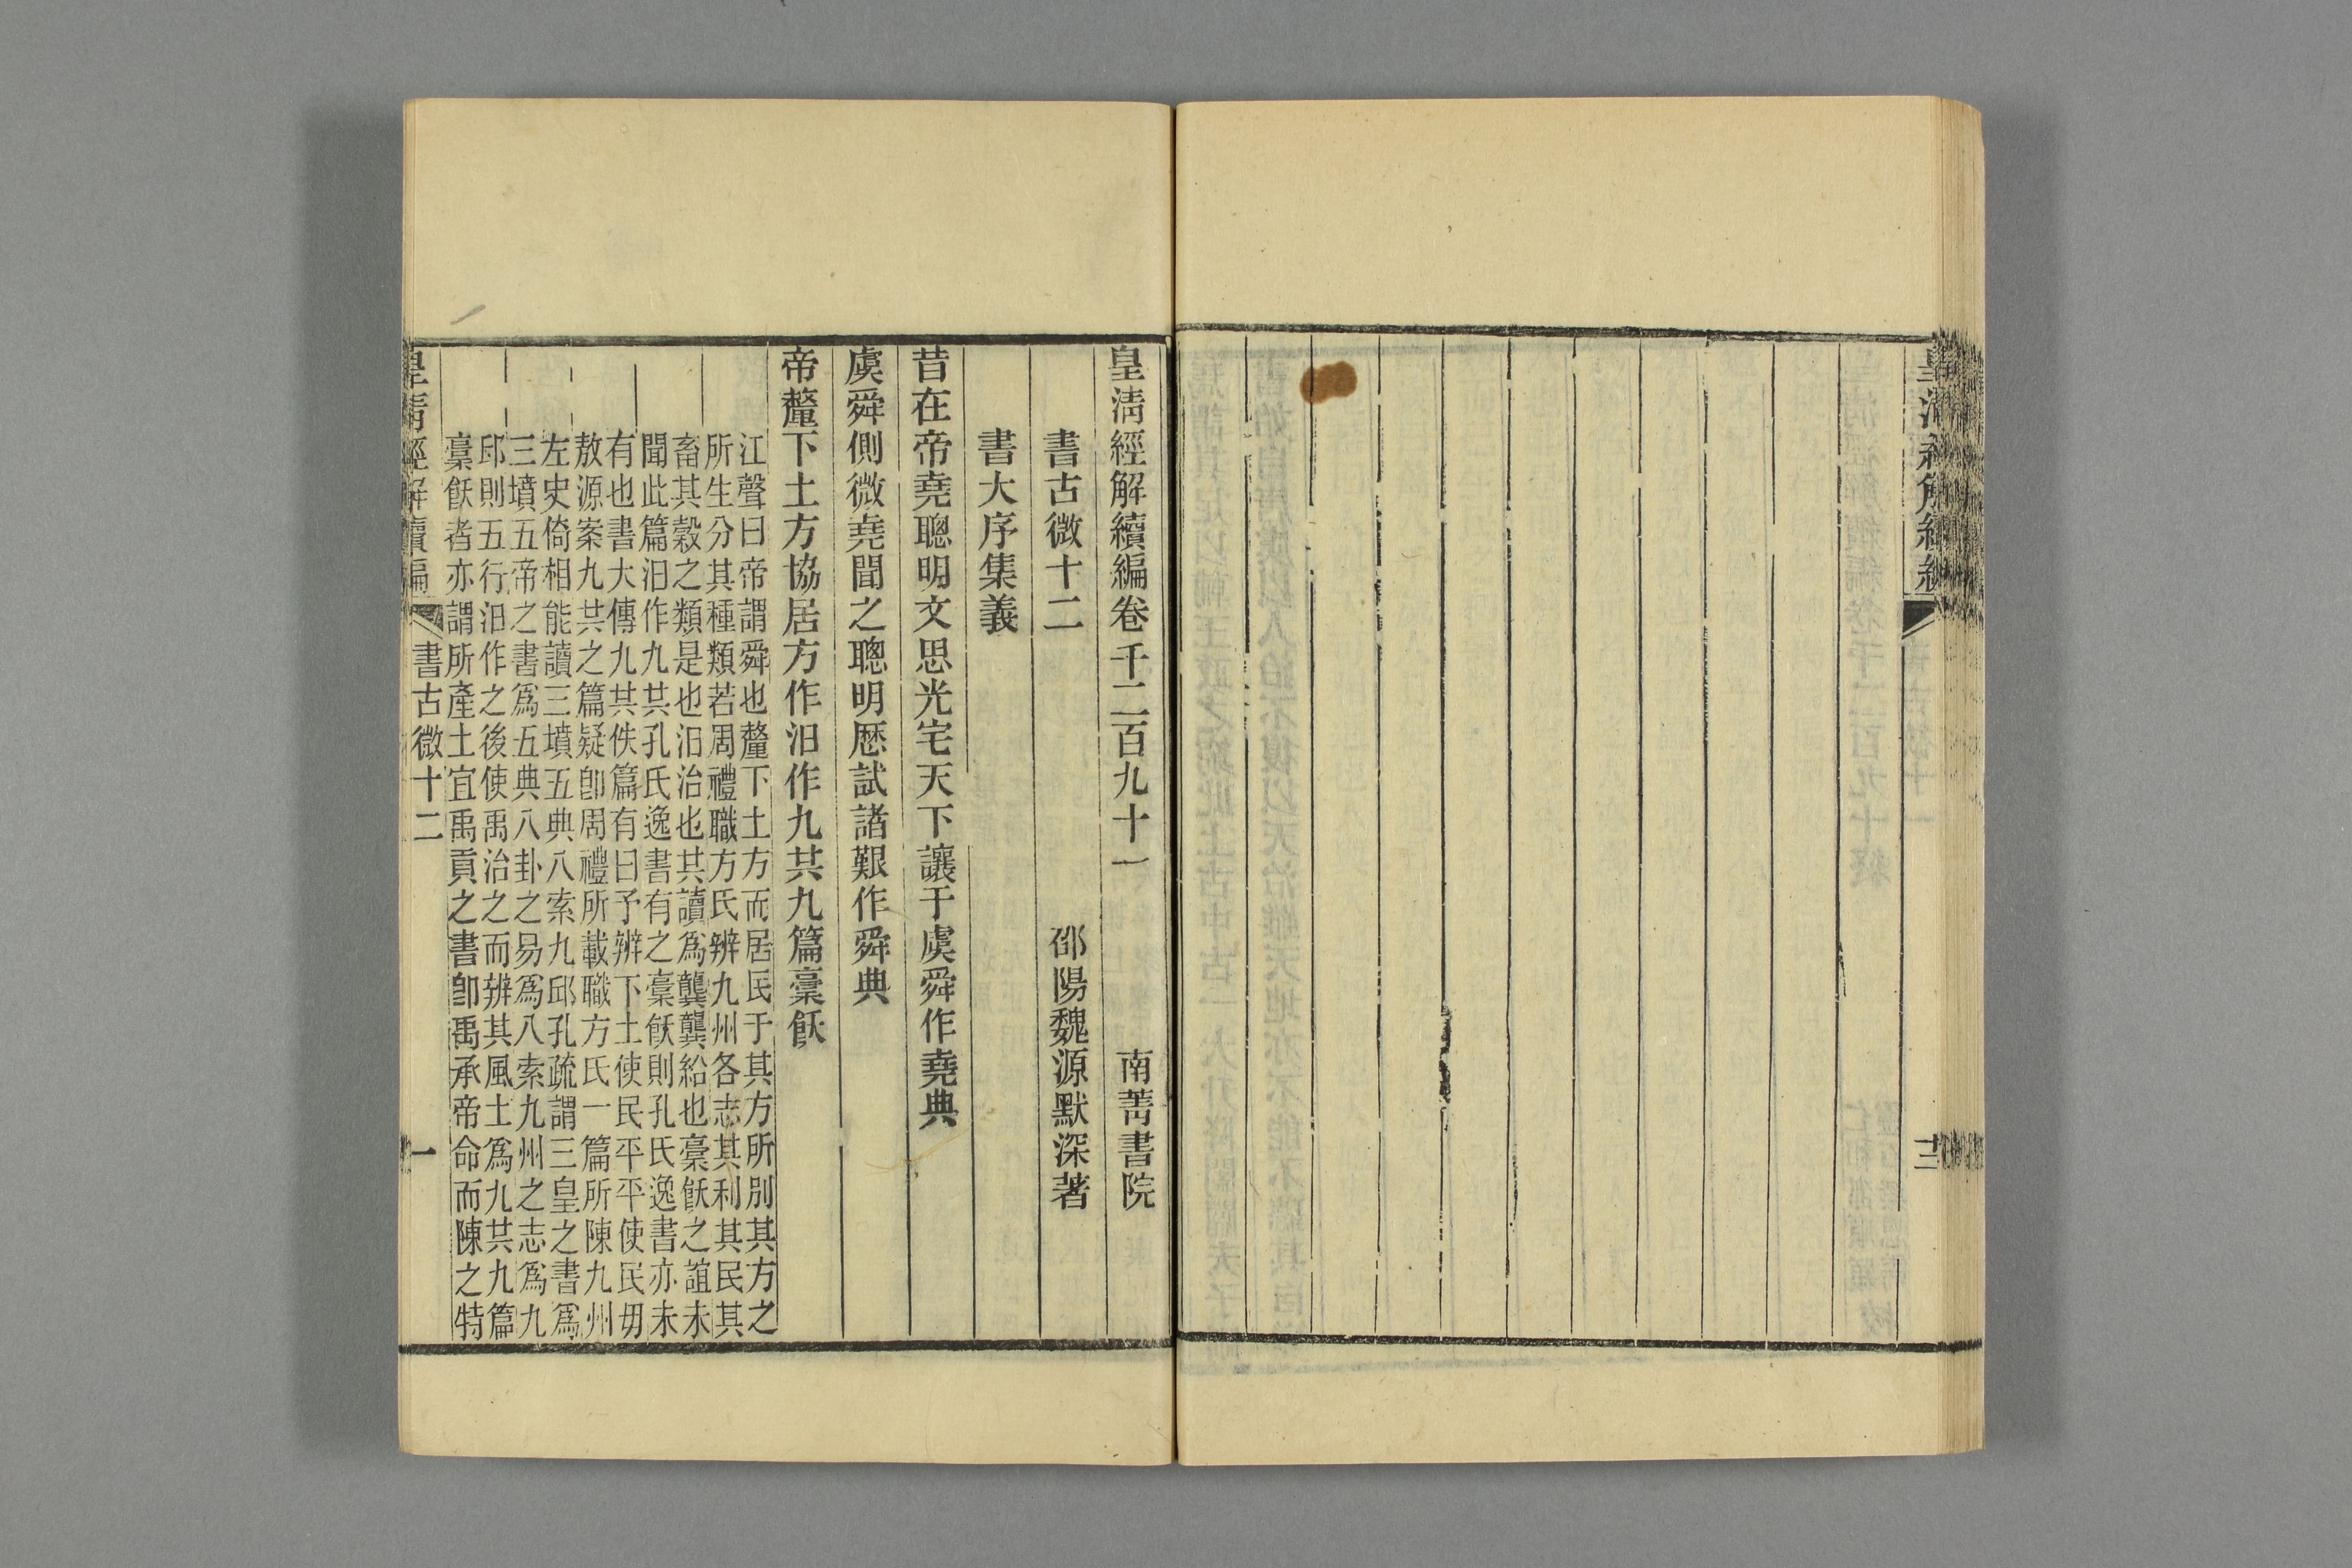 皇清經解續編卷千二百九十一 南菁書院
書古微十二 邵陽魏源默深著
書大序集義
昔在帝堯聰明文思光宅天下讓于虞舜作堯典
虞舜側微堯聞之聰明歷試諸艱作舜典
帝釐下土方協居方作汨作九共九篇稾飫
江聲曰帝謂舜也釐下土方而居民于其方所別其方之
所生分其種類若周禮職方氏辨九州各志其利其民其
畜其穀之類是也汨治也共讀爲龔龔給也稾飫之誼未
聞此篇汨作九共孔氏逸書有之稾飫則孔氏逸書亦未
有也書大傳九共佚篇有曰予辨下土使民平平使民毋
敖源案九共之篇疑卽周禮所載職方氏一篇所陳九州
左史倚相能讀三墳五典八索九邱孔疏謂三皇之書爲
三墳五帝之書爲五典八卦之易爲八索九州之志爲九
邱則五行汨作之後使禹治之而辨其風土爲九共九篇
稾飫者亦謂所產土宜禹貢之書卽禹承帝命而陳之特
皇清經解續編 書古微十二 一